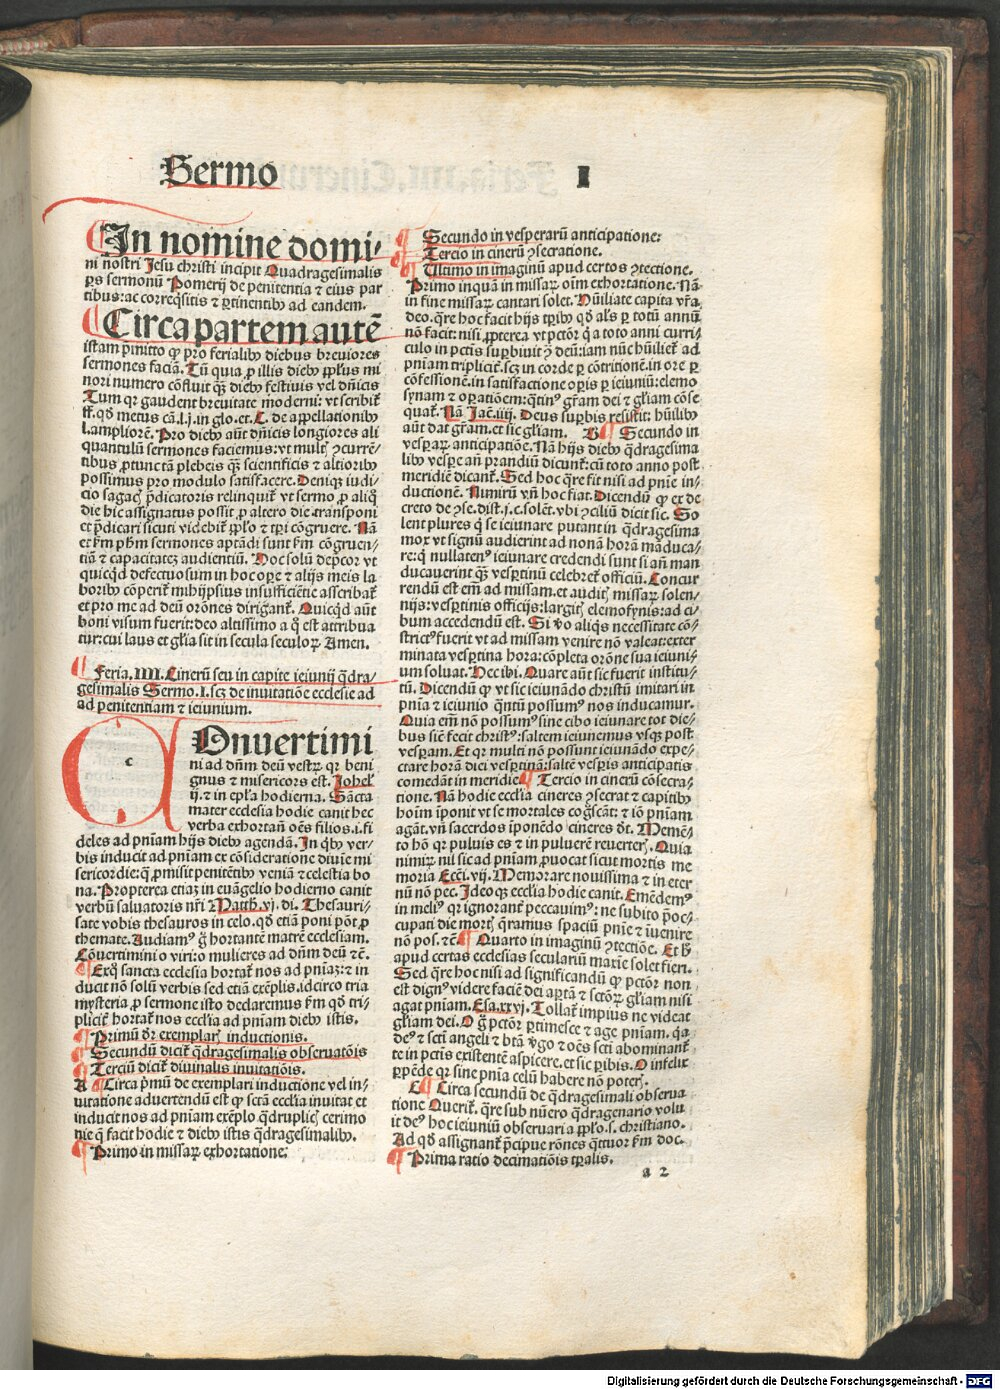 Sermo I
In nomine domi⸗
ni nostri Jesu christi incipit Quadragesimalis
ꝑs sermonū Pomerij de penitentia ⁊ eius par
tibus: ac correq̄sitis ⁊ ꝑtinentibꝰ ad eandem.
Circa partem autē
istam p̄mitto ꝙ pro ferialibꝰ diebus breuiores
sermones faciā. Tū quia ꝓ illis diebꝰ ppl̄us mi
nori numero cōfluit q̄ꝫ diebꝰ festiuis vel dn̄icis
Tum qꝛ gaudent breuitate moderni: vt scribit̄
ff. qd̓ metus cā. l. j. in glo. et. C. de appellationibꝰ
l. ampliorē. Pro diebꝰ aūt dn̄icis longiores ali
quantulū sermones faciemus: vt multꝭ ꝯcurrē⸗
tibus ꝓtunc tā plebeis q̄ꝫ scientificis ⁊ altioribꝰ
possimus pro modulo satisfacere. Deniqꝫ iudi⸗
cio sagacꝭ p̄dicatoris relinquit̄ vt sermo ꝓ aliq̄
die hic assignatus possit ꝓ altero die transponi
et p̄dicari sicuti videbit̄ ppl̄o ⁊ tꝑi cōgruere. Nā
et ẜm pḣm sermones aptādi sunt ẜm cōgruen⸗
tiā ⁊ capacitateꝫ audientiū. Hoc solū dep̄cor vt
quicq̄d defectuosum in hoc oꝑe ⁊ alijs meis la
boribꝰ cōperit̄ mihijpsius insufficiētie asscribat̄
et pro me ad deū orōnes dirigant̄. Quicq̄d aūt
boni visum fuerit: deo altissimo a q̊ est attribua
tur: cui laus et gl̓ia sit in secula seculoꝝ Amen.
Feria. IIII. Cinerū seu in capite ieiunij q̄dra⸗
gesimalis Sermo. I. scꝫ de inuitatiōe ecclesie ad
ad penitentiam ⁊ ieiunium.
c
Onuertimi
ni ad dn̄m deū vestꝝ qꝛ beni
gnus ⁊ misericors est. Johel̓
ij. ⁊ in epl̓a hodierna. Sācta
mater ecclesia hodie canit hec
verba exhortan̄ oēs filios. i. fi
deles ad pn̄iam hijs diebꝰ agendā. In q̇bꝰ ver⸗
bis inducit ad pn̄iam et cōsideratione diuīe mi
sericordie: q̄ ꝓmisit penitētibꝰ veniā ⁊ celestia bo
na. Propterea etiaꝫ in euāgelio hodierno canit
verbū saluatoris nr̄i Matth. vj. di. Thesauri⸗
sate vobis thesauros in celo. qd̓ etiā poni pōt ꝓ
themate. Audiamꝰ g̊ hortantē matrē ecclesiam.
Cōuertimini o viri: o mulieres ad dn̄m deū ⁊c̄.
Exq̊ sancta ecclesia hortat̄ nos ad pn̄iaꝫ: ⁊ in
ducit nō solū verbis sed etiā exēplis. idcirco tria
mysteria ꝓ sermone isto declaremus ẜm qd̓ tri⸗
plicit̓ hortat̄ nos eccl̓ia ad pn̄iam diebꝰ istis.
Primū dr̄ exemplarꝭ inductionis.
Secundū dicit̄ q̄dragesimalis obseruatōis
Terciū dicit̄ diuinalis inuitatiōis.
A Circa p̓mū de exemplari inductione vel in⸗
uitatione aduertendū est ꝙ sctā eccl̓ia inuitat et
inducit nos ad pn̄iam exēplo q̄druplicꝭ cerimo
nie q̄ facit hodie ⁊ diebꝰ istis q̄dragesimalibꝰ.
Primo in missaꝝ exhortatione:
Secundo in vesperarū anticipatione:
Tercio in cinerū ꝯsecratione.
Ultimo in imaginū apud certos ꝯtectione.
Primo inquā in missaꝝ oīm exhortatione. Nā
in fine missaꝝ cantari solet. Hūiliate capita vr̄a
deo. q̄re hoc facit hijs tꝑibꝰ qd̓ al̓s ꝑ totū annū
nō facit: nisi ꝓpterea vt pctōr q̇ a toto anni curri⸗
culo in pctīs suꝑbiuit ꝯ̄ deū: iam nūc hūiliet̄ ad
pn̄iam triplicit̓. scꝫ in corde ꝑ cōtritionē. in ore ꝑ
cōfessionē. in satisfactione oꝑis ꝑ ieiuniū: elemo
synam ⁊ oratiōem: q̄tinꝰ gr̄am dei ⁊ gl̓iam cōse
quat̄. Nā Jac̄. iiij. Deus suꝑbis resistit: hūilibꝰ
aūt dat gr̄am. et sic gl̓iam. B Secundo in
vesꝑaꝝ anticipatiōe. Nā hijs diebꝰ q̄dragesima
libꝰ vesꝑe an̄ prandiū dicunt̄: cū toto anno post
meridiē dicant̄. Sed hoc q̄re fit nisi ad pn̄ie in⸗
ductionē. Nimirū vn̄ hoc fiat. Dicendū ꝙ ex de
creto de ꝯse. dist. j. c. solēt. vbi ꝯciliū dicit sic. So
lent plures q̇ se ieiunare putant in q̄dragesima
mox vt signū audierint ad nonā horā māduca⸗
re: q̇ nullatenꝰ ieiunare credendi sunt si an̄ man
ducauerint q̄ꝫ vesꝑtinū celebret̄ officiū. Concur
rendū est em̄ ad missam. et auditꝭ missaꝝ solen⸗
nijs: vesꝑtinis officijs: largitꝭ elemosynis: ad ci⸗
bum accedendū est. Si v̊o aliq̇s necessitate cō⸗
strictꝰ fuerit vt ad missam venire nō valeat: exter
minata vesꝑtina hora: cōpleta orōne sua ieiuni⸗
um soluat. Hec ibi. Quare aūt sic fuerit institu⸗
tū. Dicendū ꝙ vt sic ieiunādo christū imitari in
pn̄ia ⁊ ieiunio q̄ntū possumꝰ nos inducamur.
Quia em̄ nō possumꝰ sine cibo ieiunare tot die⸗
bus sic̄ fecit christꝰ: saltem ieiunemus vsqꝫ post
vesꝑam. Et qꝛ multi nō possunt ieiunādo expe⸗
ctare horā diei vesꝑtinā: saltē vesꝑis anticipatis
comedāt in meridie. Tercio in cinerū cōsecra⸗
tione. Nā hodie eccl̓ia cineres ꝯsecrat ⁊ capitibꝰ
hoīm īponit vt se mortales cogͦscāt: ⁊ iō pn̄iam
agāt. vn̄ sacerdos īponēdo cineres dt̓. Memē⸗
to hō qꝛ puluis es ⁊ in puluerē reuerterꝭ. Quia
nimiꝝ nil sic ad pn̄iam ꝓuocat sicut mortis me
moria Ecc̄i. vij. Memorare nouissima ⁊ in eter
nū nō pec̄. Jdeoqꝫ eccl̓ia hodie canit. Emēdemꝰ
in meliꝰ qꝛ ignorant̓ peccauimꝰ: ne subito p̄oc⸗
cupati die mortꝭ q̄ramus spaciū pn̄ie ⁊ iuenire
nō pos. ⁊c̄ Quarto in imaginū ꝯtectiōe. Et h̓
apud certas ecclesias seculariū maxīe solet fieri.
Sed q̄re hoc nisi ad significandū ꝙ pctōr non
est dignꝰ videre faciē dei aꝑtā ⁊ sctōꝝ gl̓iam nisi
agat pn̄iam. Esa. xxvj. Tollat̄ impius ne videat
gl̓iam dei. O g̊ pctōr ꝑtimesce ⁊ age pn̄iam. q̇a
deꝰ ⁊ sctī angeli ⁊ btā v̓go ⁊ oēs sctī abominant̄
te in pctīs existentē aspicere. et sic ꝑibis. O infelix
ꝑpēde qꝛ sine pn̄ia celū habere nō poterꝭ.
C Circa secundū de q̄dragesimali obserua
tione Querit̄. q̄re sub nūero q̄dragenario volu
it deꝰ hoc ieiuniū obseruari a ppl̓o. s. christiano.
Ad qd̓ assignant̄ p̄cipue rōnes q̄ttuor ẜm doc.
Prima ratio decimatiōis tꝑalis.
a 2
Digitalisierung gefördert durch die Deutsche Forschungsgemeinschaft - DFG